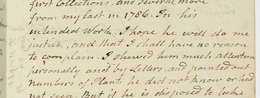 first Collections, and several more
from my last in 1786. In his
intended Work. I hope he will do me
justice, and that I shall have no reason
to complain. I shewed him much attention
personally and by Letters and pointed out
numbers of Plants he did not know or had
not seen. But if he is disposed to take